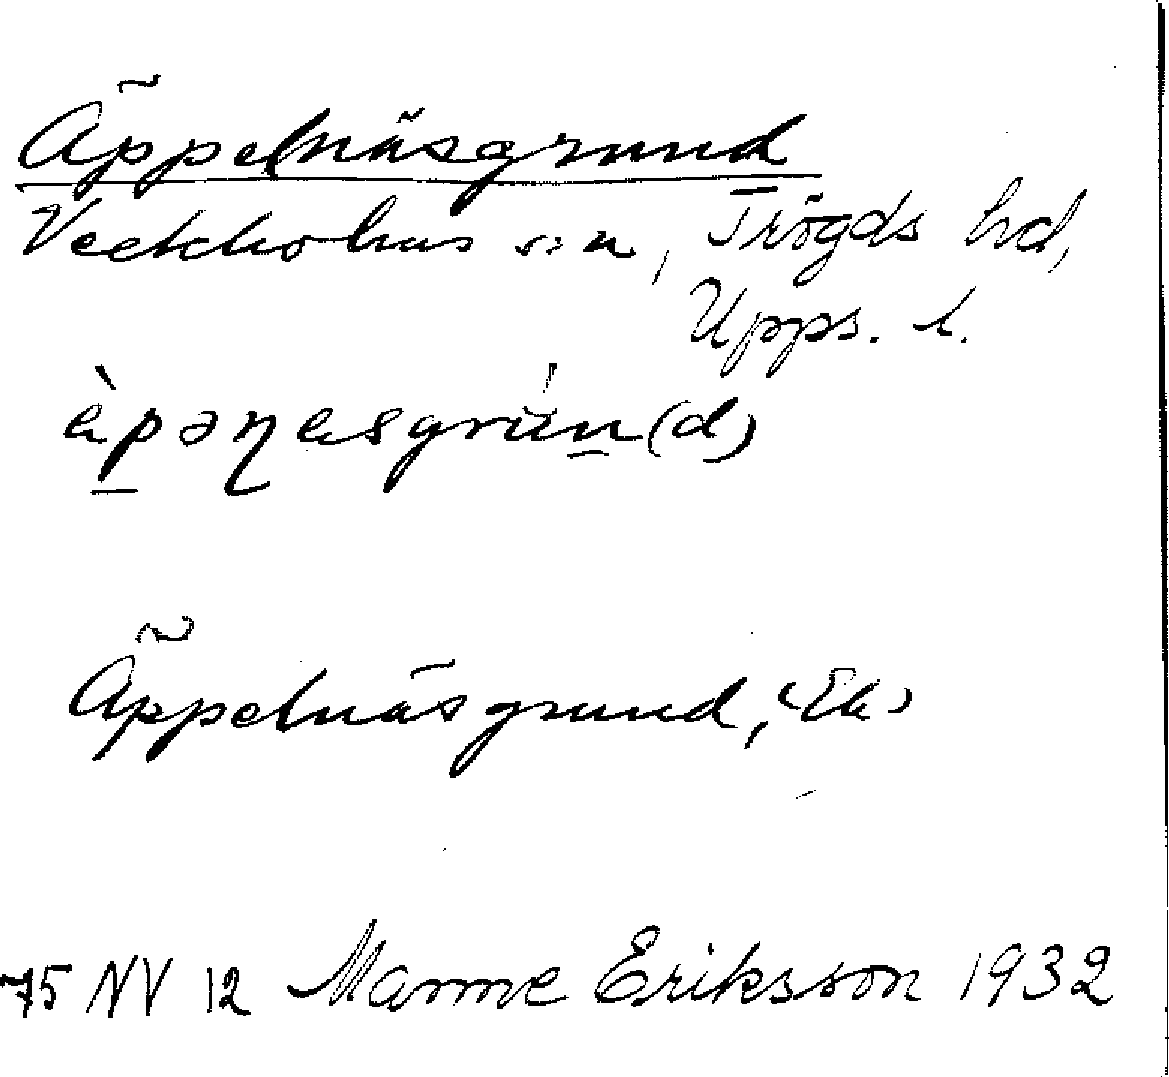 Äppelnäsgrund
Veckholms sn, Trögds hd,
Upps. l.
àpəɳesgrún(d)
Äppelnäsgrund, (Ek)
75 NV 12 Manne Eriksson 1932